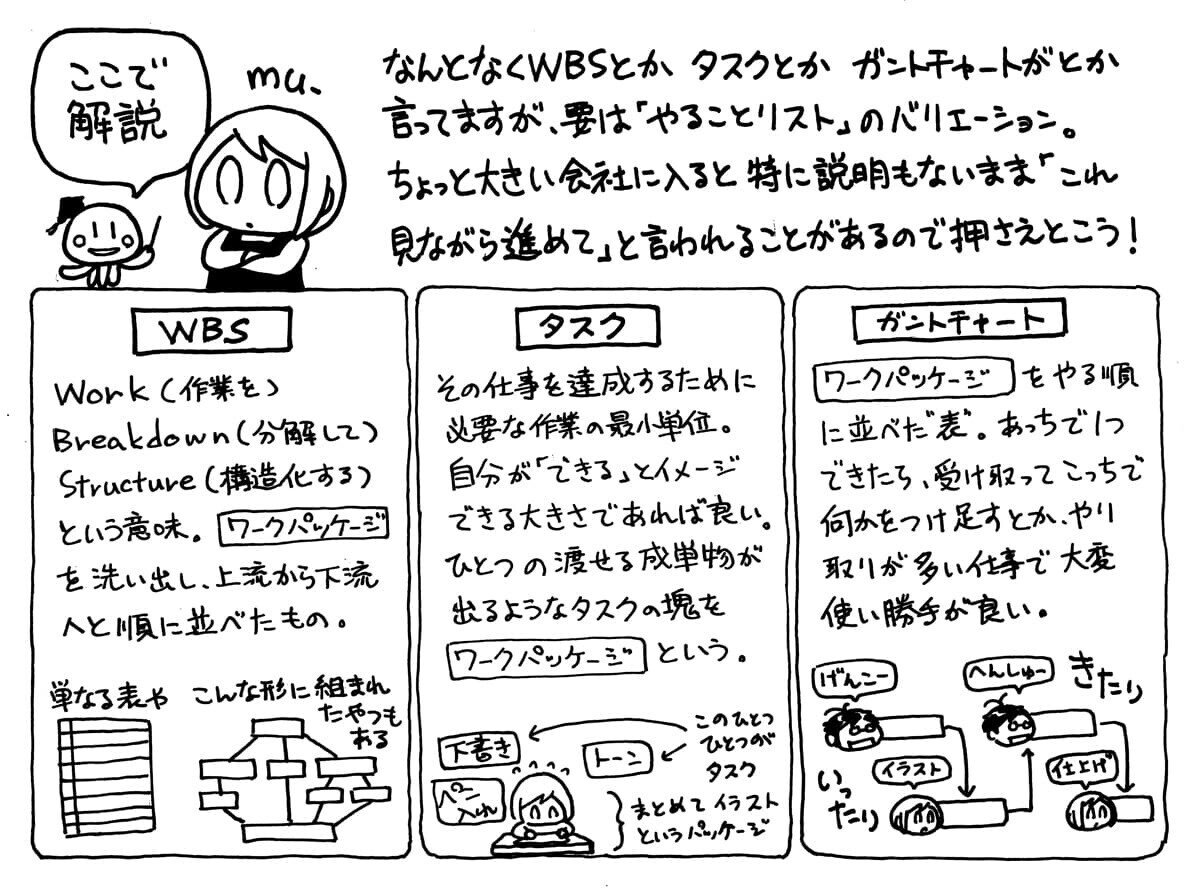 ここで
解説
mu、
なんとなくWBSとか タスクとか ガントチャートがとか
言ってますが、要は「やることリスト」のバリエーション。
ちょっと大きい会社に入ると 特に説明もないまま「これ
見ながら進めて」と言われることがあるので押さえとこう!
WBS
Work(作業を)
Breakdown(分解して)
Structure(構造化する)
という意味。ワークパッケージ
を洗い出し、上流から下流
へと順に並べたもの。
単なる表や こんな形に組まれ
たやつも
ある
タスク
その仕事を達成するために
必要な作業の最小単位。
自分が「できる」とイメージ
できる大きさであれば良い。
ひとつの渡せる成単物が
出るようなタスクの塊を
ワークパッケージ という。
下書き
トーン
ペン
入れ
このひとつ
ひとつが
タスク
まとめてイラスト
というパッケージ
ガントチャート
ワークパッケージ をやる順
に並べた"表"。あっちで1つ
できたら、受け取ってこっちで
何かをつけ足すとか、やり
取りが多い仕事で大変
使い勝手が良い。
げんこー
へんしゅー
きたり
イラスト
仕上げ
いっ
たり